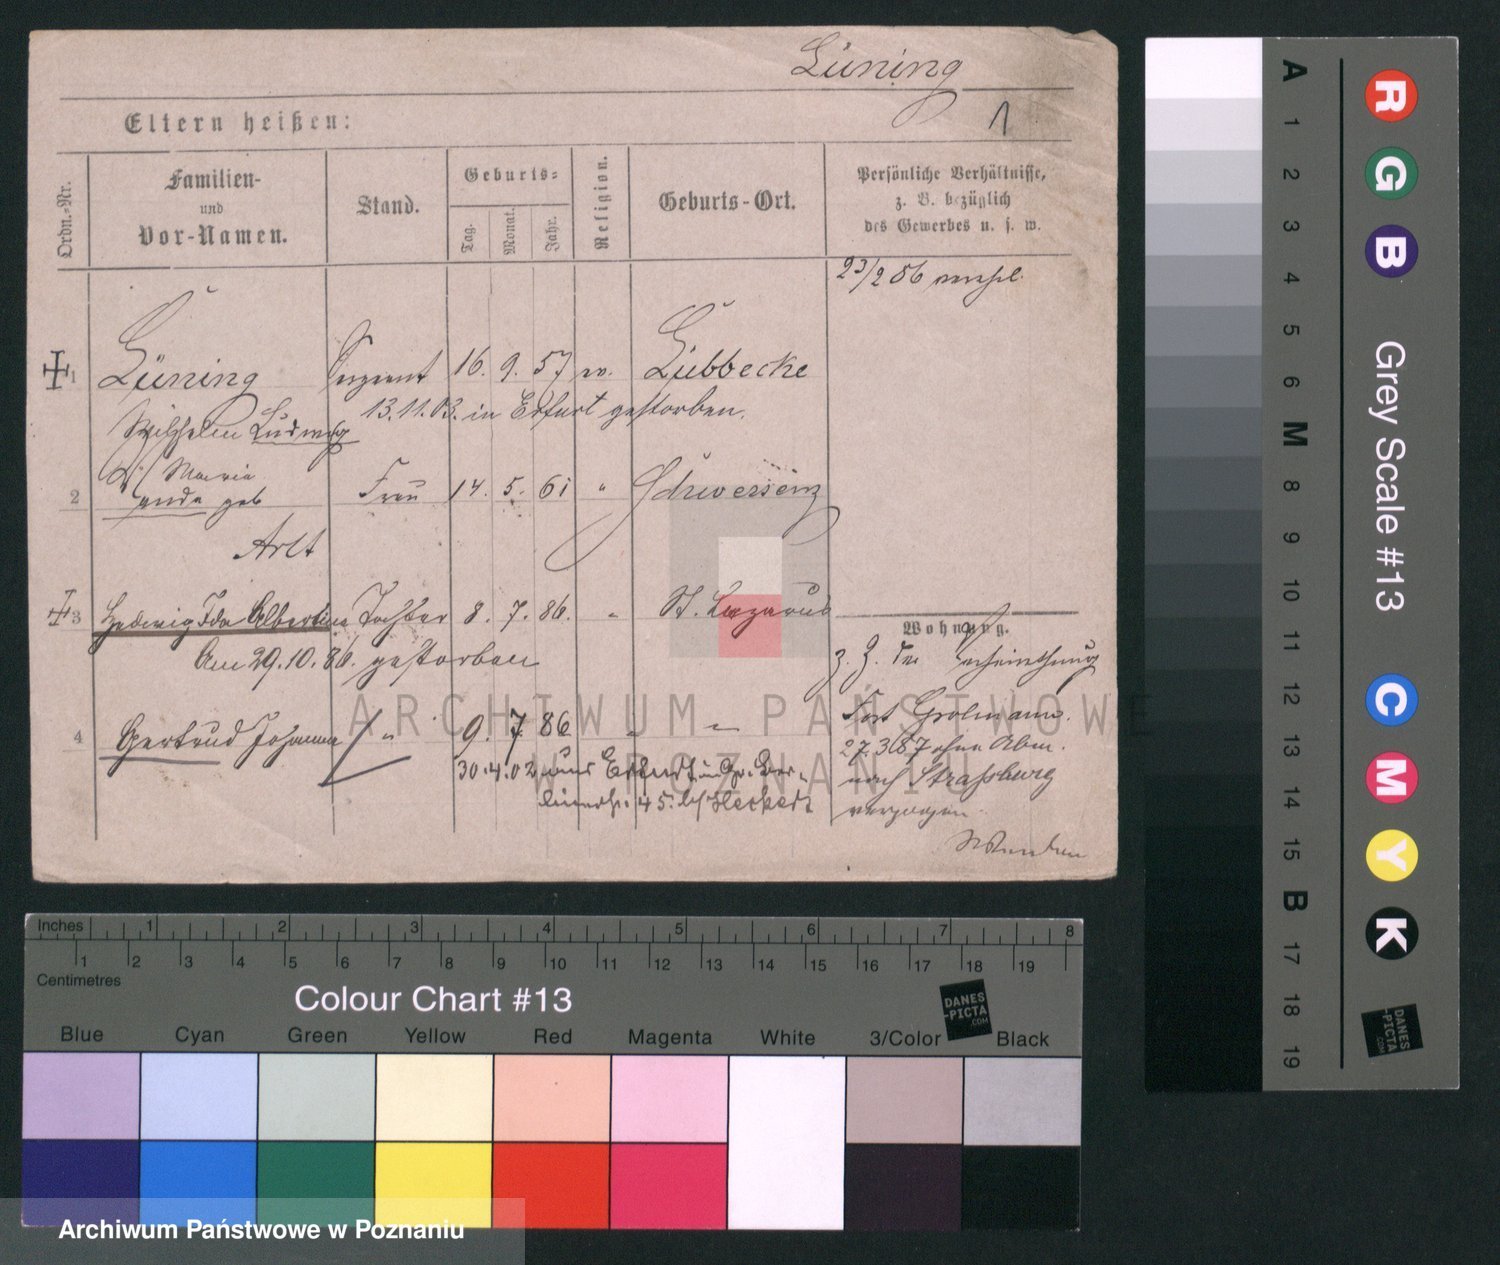 Lüning
1
Eltern heißen:
Ordn.-Nr.
Familien-
und
Vor-Namen.
Stand.
Geburts-
Tag.
Monat.
Jahr.
Religion.
Geburts-Ort.
Persönliche Verhältnisse,
z. B. bezüglich
des Gewerbes u. s. w.
23/2 86
1 Lüning Sergeant 16. 9. 57 ev. Lübbecke
13.11.03. in Erfurt gestorben.
Wilhelm Ludwig
Maria
2 geb Frau 14. 5. 61 " Schwersenz
Arlt
3 Hedwig Ida Albertine Tochter 8. 7. 86. " St. Lazarus
Am 29.10.86. gestorben
4 Gertrud Johanna " 9. 7. 86 " "
30.4.02 aus Erfurt
45. Heckert
Wohnung.
z. Z. in
Fort Grolmann.
27.3.87 ohne Abm.
nach Straßburg
verzogen
ARCHIWUM PAŃSTWOWE
W POZNANIU
Inches 1 2 3 4 5 6 7 8
Centimetres 1 2 3 4 5 6 7 8 9 10 11 12 13 14 15 16 17 18 19
Colour Chart #13
DANES
-PICTA
.COM
Blue Cyan Green Yellow Red Magenta White 3/Color Black
Archiwum Państwowe w Poznaniu
A 1 2 3 4 5 6 M 8 9 10 11 12 13 14 15 B 17 18 19
R G B Grey Scale #13 C M Y K
DANES
-PICTA
.COM